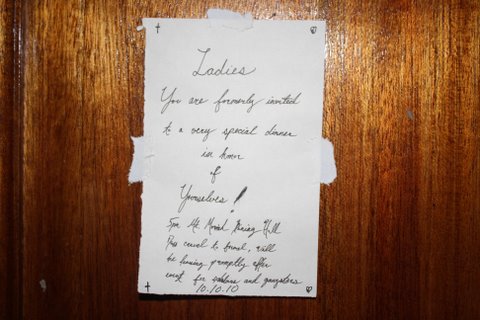 Ladies
You are formerly invited
to a very special dinner
in honor
of
Yourselves!
5pm Mt. Dining Hall
casual to formal, will
be leaving promptly after
event for and gangsters
10.10.10